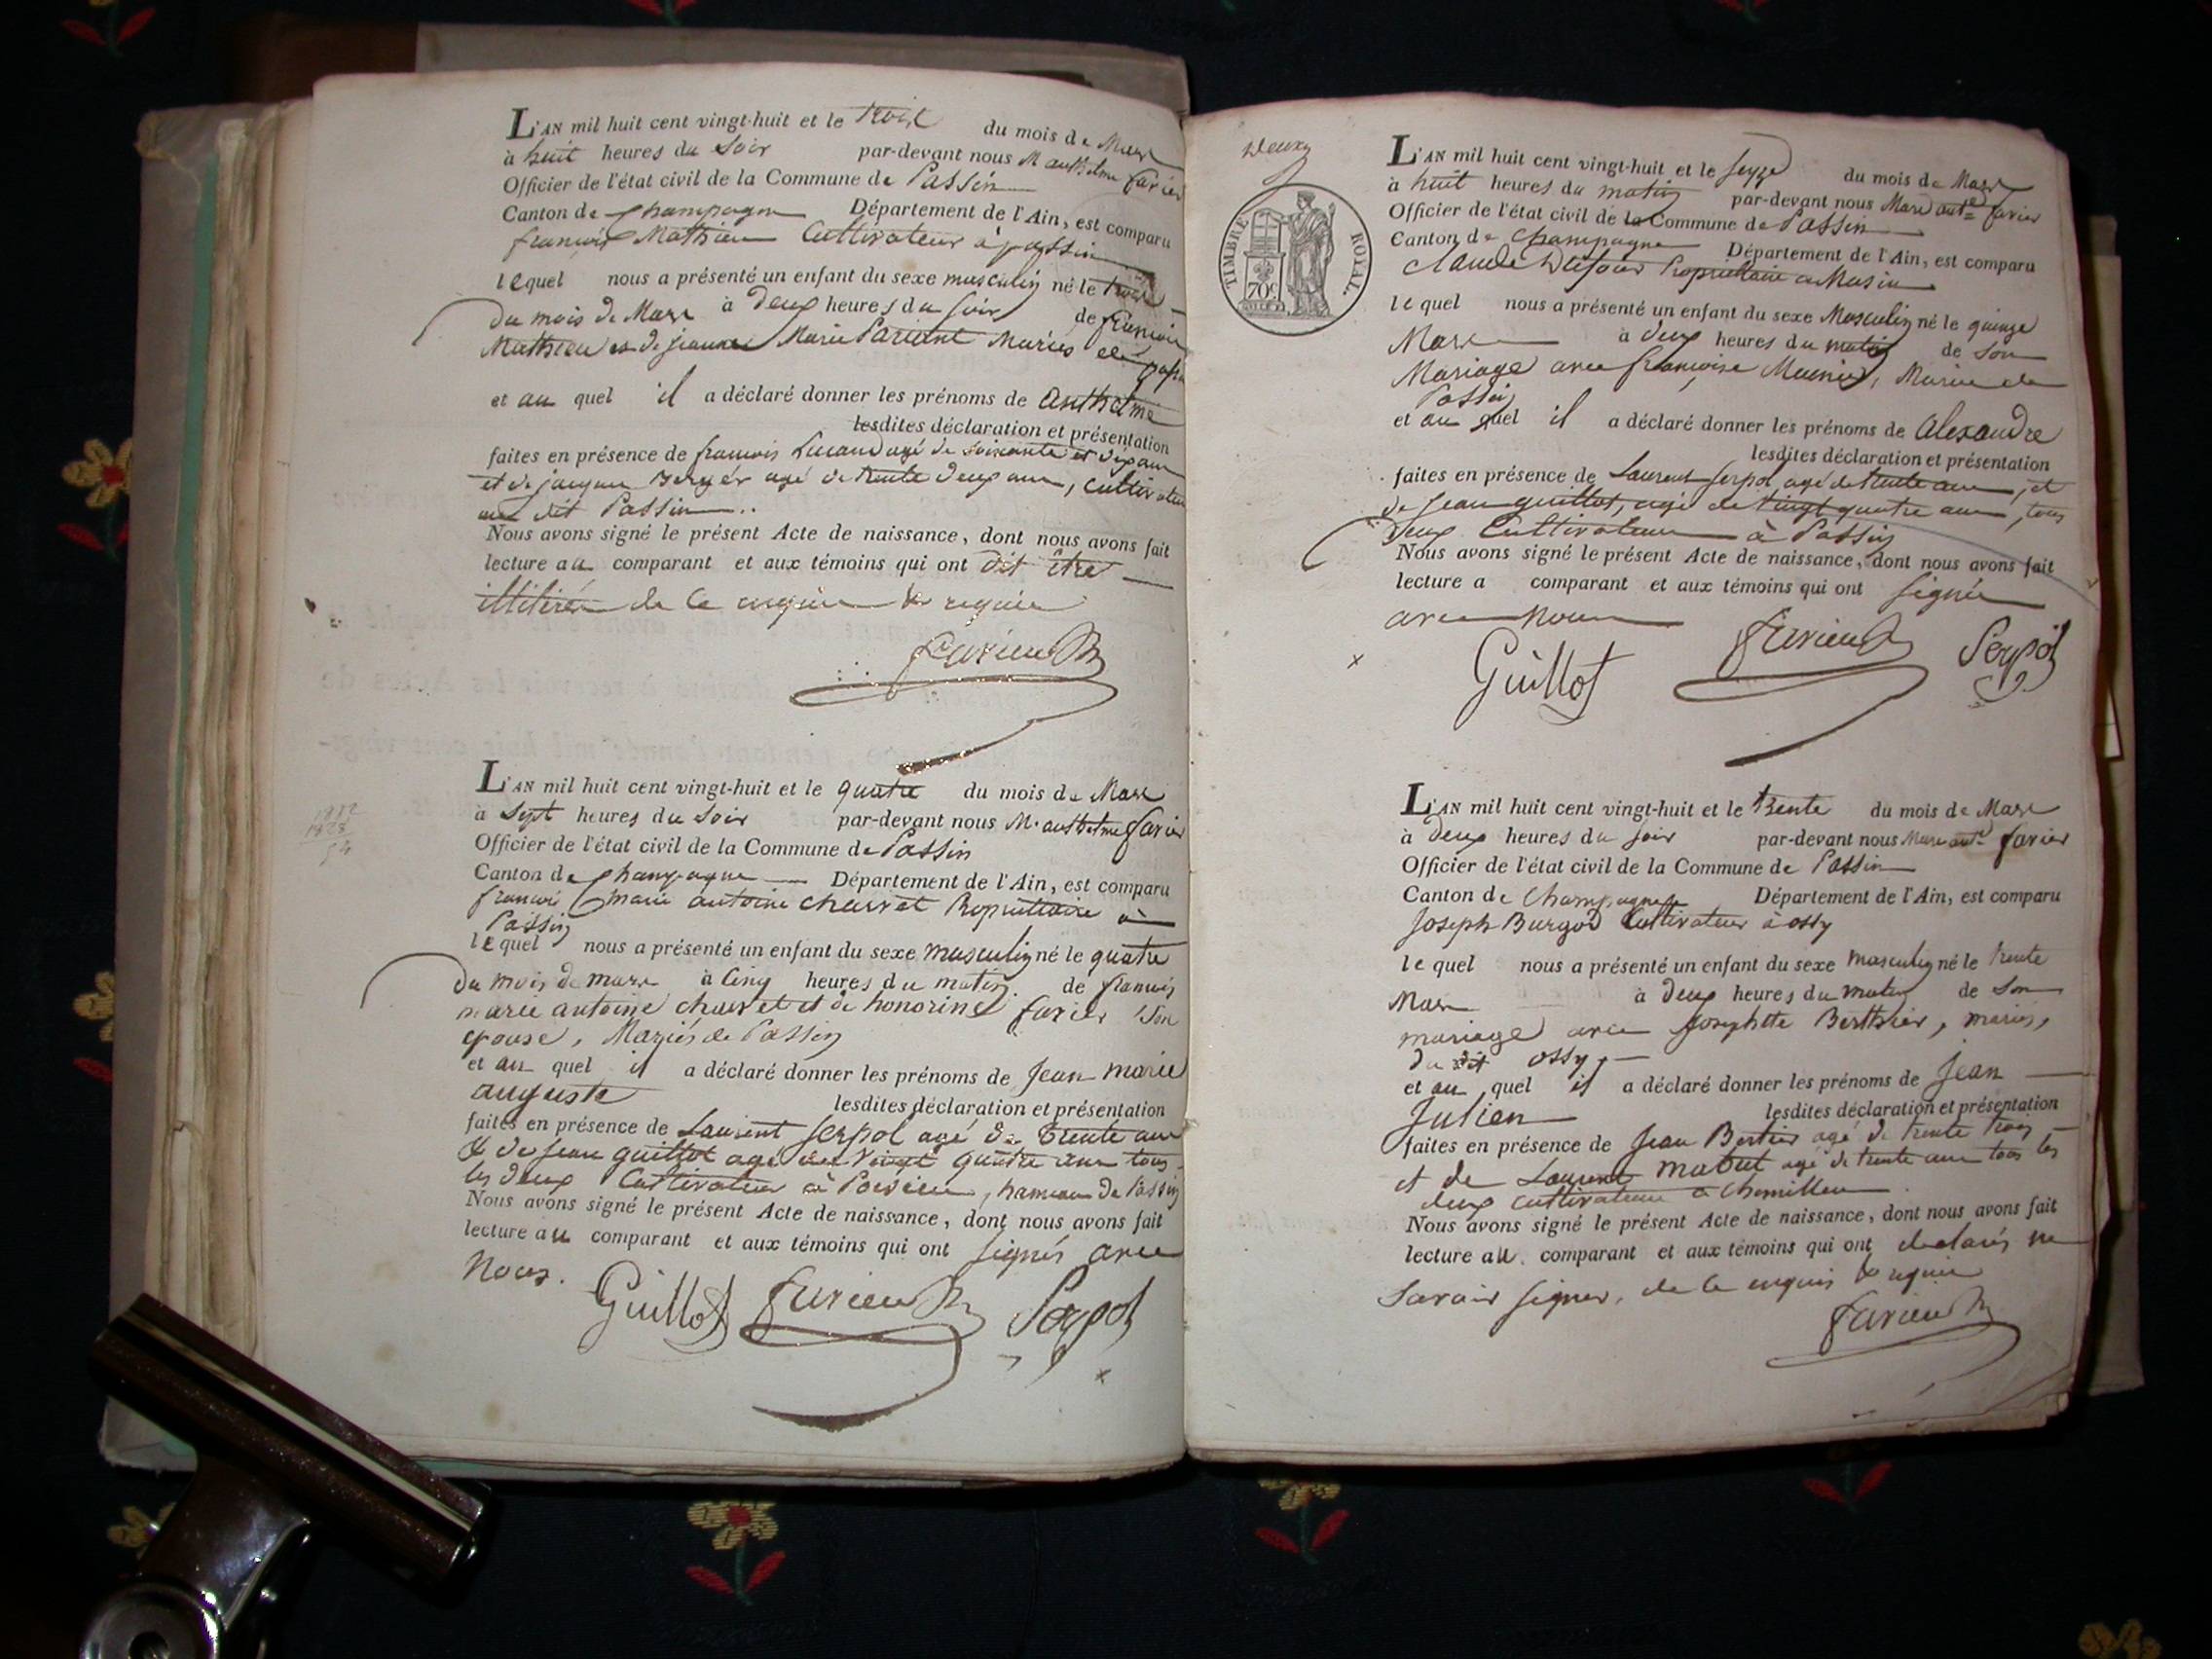 L'AN mil huit cent vingt-huit et le trois du mois de Mars
à huit heures du Soir par-devant nous M anthelme favier
Officier de l'état civil de la Commune de Passin
Canton de champagne Département de l'Ain, est comparu
françois Mathieu Cultivateur à passin
lequel nous a présenté un enfant du sexe masculin né le trois
du mois de Mars à deux heures du soir de françois
Mathieu et de jeanne Marie Pariant Mariés
et au quel il a déclaré donner les prénoms de anthelme
lesdites déclaration et présentation
faites en présence de francois agé de soixante et dix ans
et de jacques Berger agé de trente deux ans, cultivateurs
dit Passin
Nous avons signé le présent Acte de naissance, dont nous avons fait
lecture au comparant et aux témoins qui ont dit être
illitirés de ce enquis & requis
favier
L'AN mil huit cent vingt-huit et le quatre du mois de Mars
à Sept heures du Soir par-devant nous M. anthelme favier
Officier de l'état civil de la Commune de Passin
Canton de champagne Département de l'Ain, est comparu
francois marie antoine charvet Propriettaire à
Passin
lequel nous a présenté un enfant du sexe masculin né le quatre
du mois de mars à cinq heures du matin de francois
marie antoine charvet et de honorine favier son
epouse, Mariés de Passin
et au quel il a déclaré donner les prénoms de Jean marie
auguste lesdites déclaration et présentation
faites en présence de Laurent Serpol agé de trente ans
& de Jean guillot agé de vingt quatre ans tous
les deux Cultivateurs à Poisieu, hameau de Passin
Nous avons signé le présent Acte de naissance, dont nous avons fait
lecture au comparant et aux témoins qui ont signés avec
nous.
Guillot favier Serpol
1828
deux
TIMBRE ROYAL.
70c
L'AN mil huit cent vingt-huit et le seize du mois de Mars
à huit heures du matin par-devant nous Marc ant favier
Officier de l'état civil de la Commune de Passin
Canton de Champagne Département de l'Ain, est comparu
Claude Dufour Propriettaire Musin
lequel nous a présenté un enfant du sexe Masculin né le quinze
Mars à deux heures du matin de son
Mariage avec françoise Meunier, Mariés de
Passin
et au quel il a déclaré donner les prénoms de Alexandre
lesdites déclaration et présentation
faites en présence de Laurent Serpol agé de trente ans, et
de Jean guillot, agé de vingt quatre ans, tous
deux Cultivateurs à Passin
Nous avons signé le présent Acte de naissance, dont nous avons fait
lecture a comparant et aux témoins qui ont signés
avec nous
Guillot favier Serpol
L'AN mil huit cent vingt-huit et le trente du mois de Mars
à deux heures du soir par-devant nous Marc ant favier
Officier de l'état civil de la Commune de Passin
Canton de Champagne Département de l'Ain, est comparu
Joseph Burgod Cultivateur à ossy
lequel nous a présenté un enfant du sexe masculin né le trente
Mars à deux heures du matin de son
mariage avec Josephtte Berthier, mariés,
du dit ossy
et au quel il a déclaré donner les prénoms de Jean
Julien lesdites déclaration et présentation
faites en présence de Jean Bertier agé de trente trois
et de Laurent mabut agé de trente ans tous les
deux cultivateurs a chemilleu
Nous avons signé le présent Acte de naissance, dont nous avons fait
lecture au comparant et aux témoins qui ont declarés ne
savoir signer, de ce enquis & requis
favier